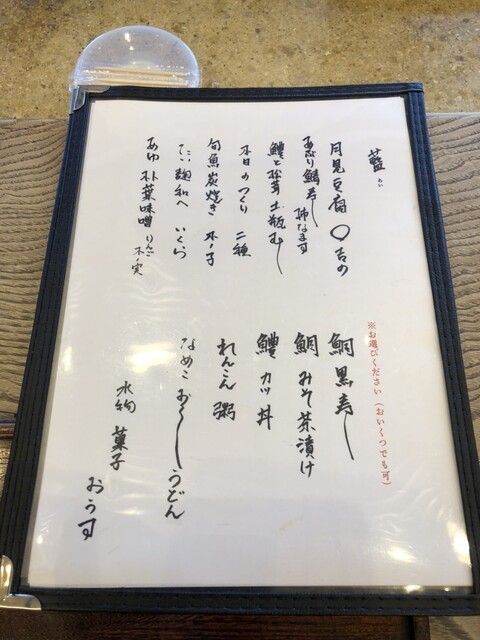 藍 あい
月見豆腐 〇舌の
あぶり鯖寿し 柿なます
鱧と松茸土瓶むし
本日のつくり 二種
旬魚炭焼き 木ノ子
たい麹和へ いくら
あゆ 朴葉味噌 りんご 木ノ実
※お選びください（おいくつでも可）
鯛黒寿し
鯛みそ茶漬け
鱧カツ丼
れんこん粥
なめこおろしうどん
水物 菓子
おうす